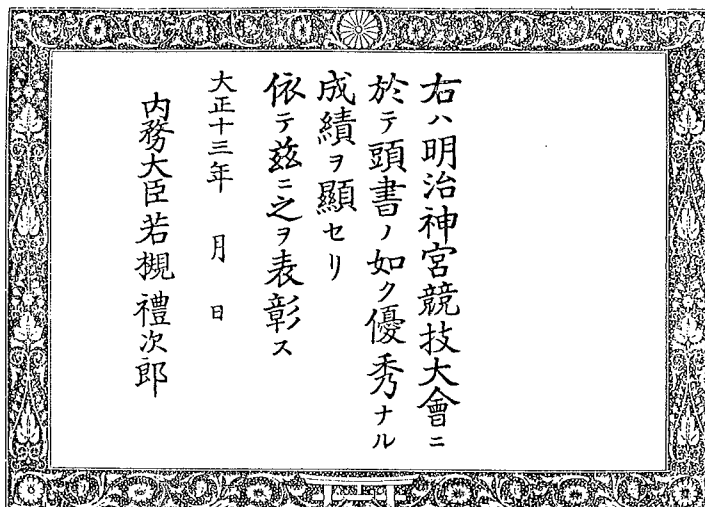 右ハ明治神宮競技大會ニ
於テ頭書ノ如ク優秀ナル
成績ヲ顯セリ
依テ茲ニ之ヲ表彰ス
大正十三年　月　日
内務大臣若槻禮次郎